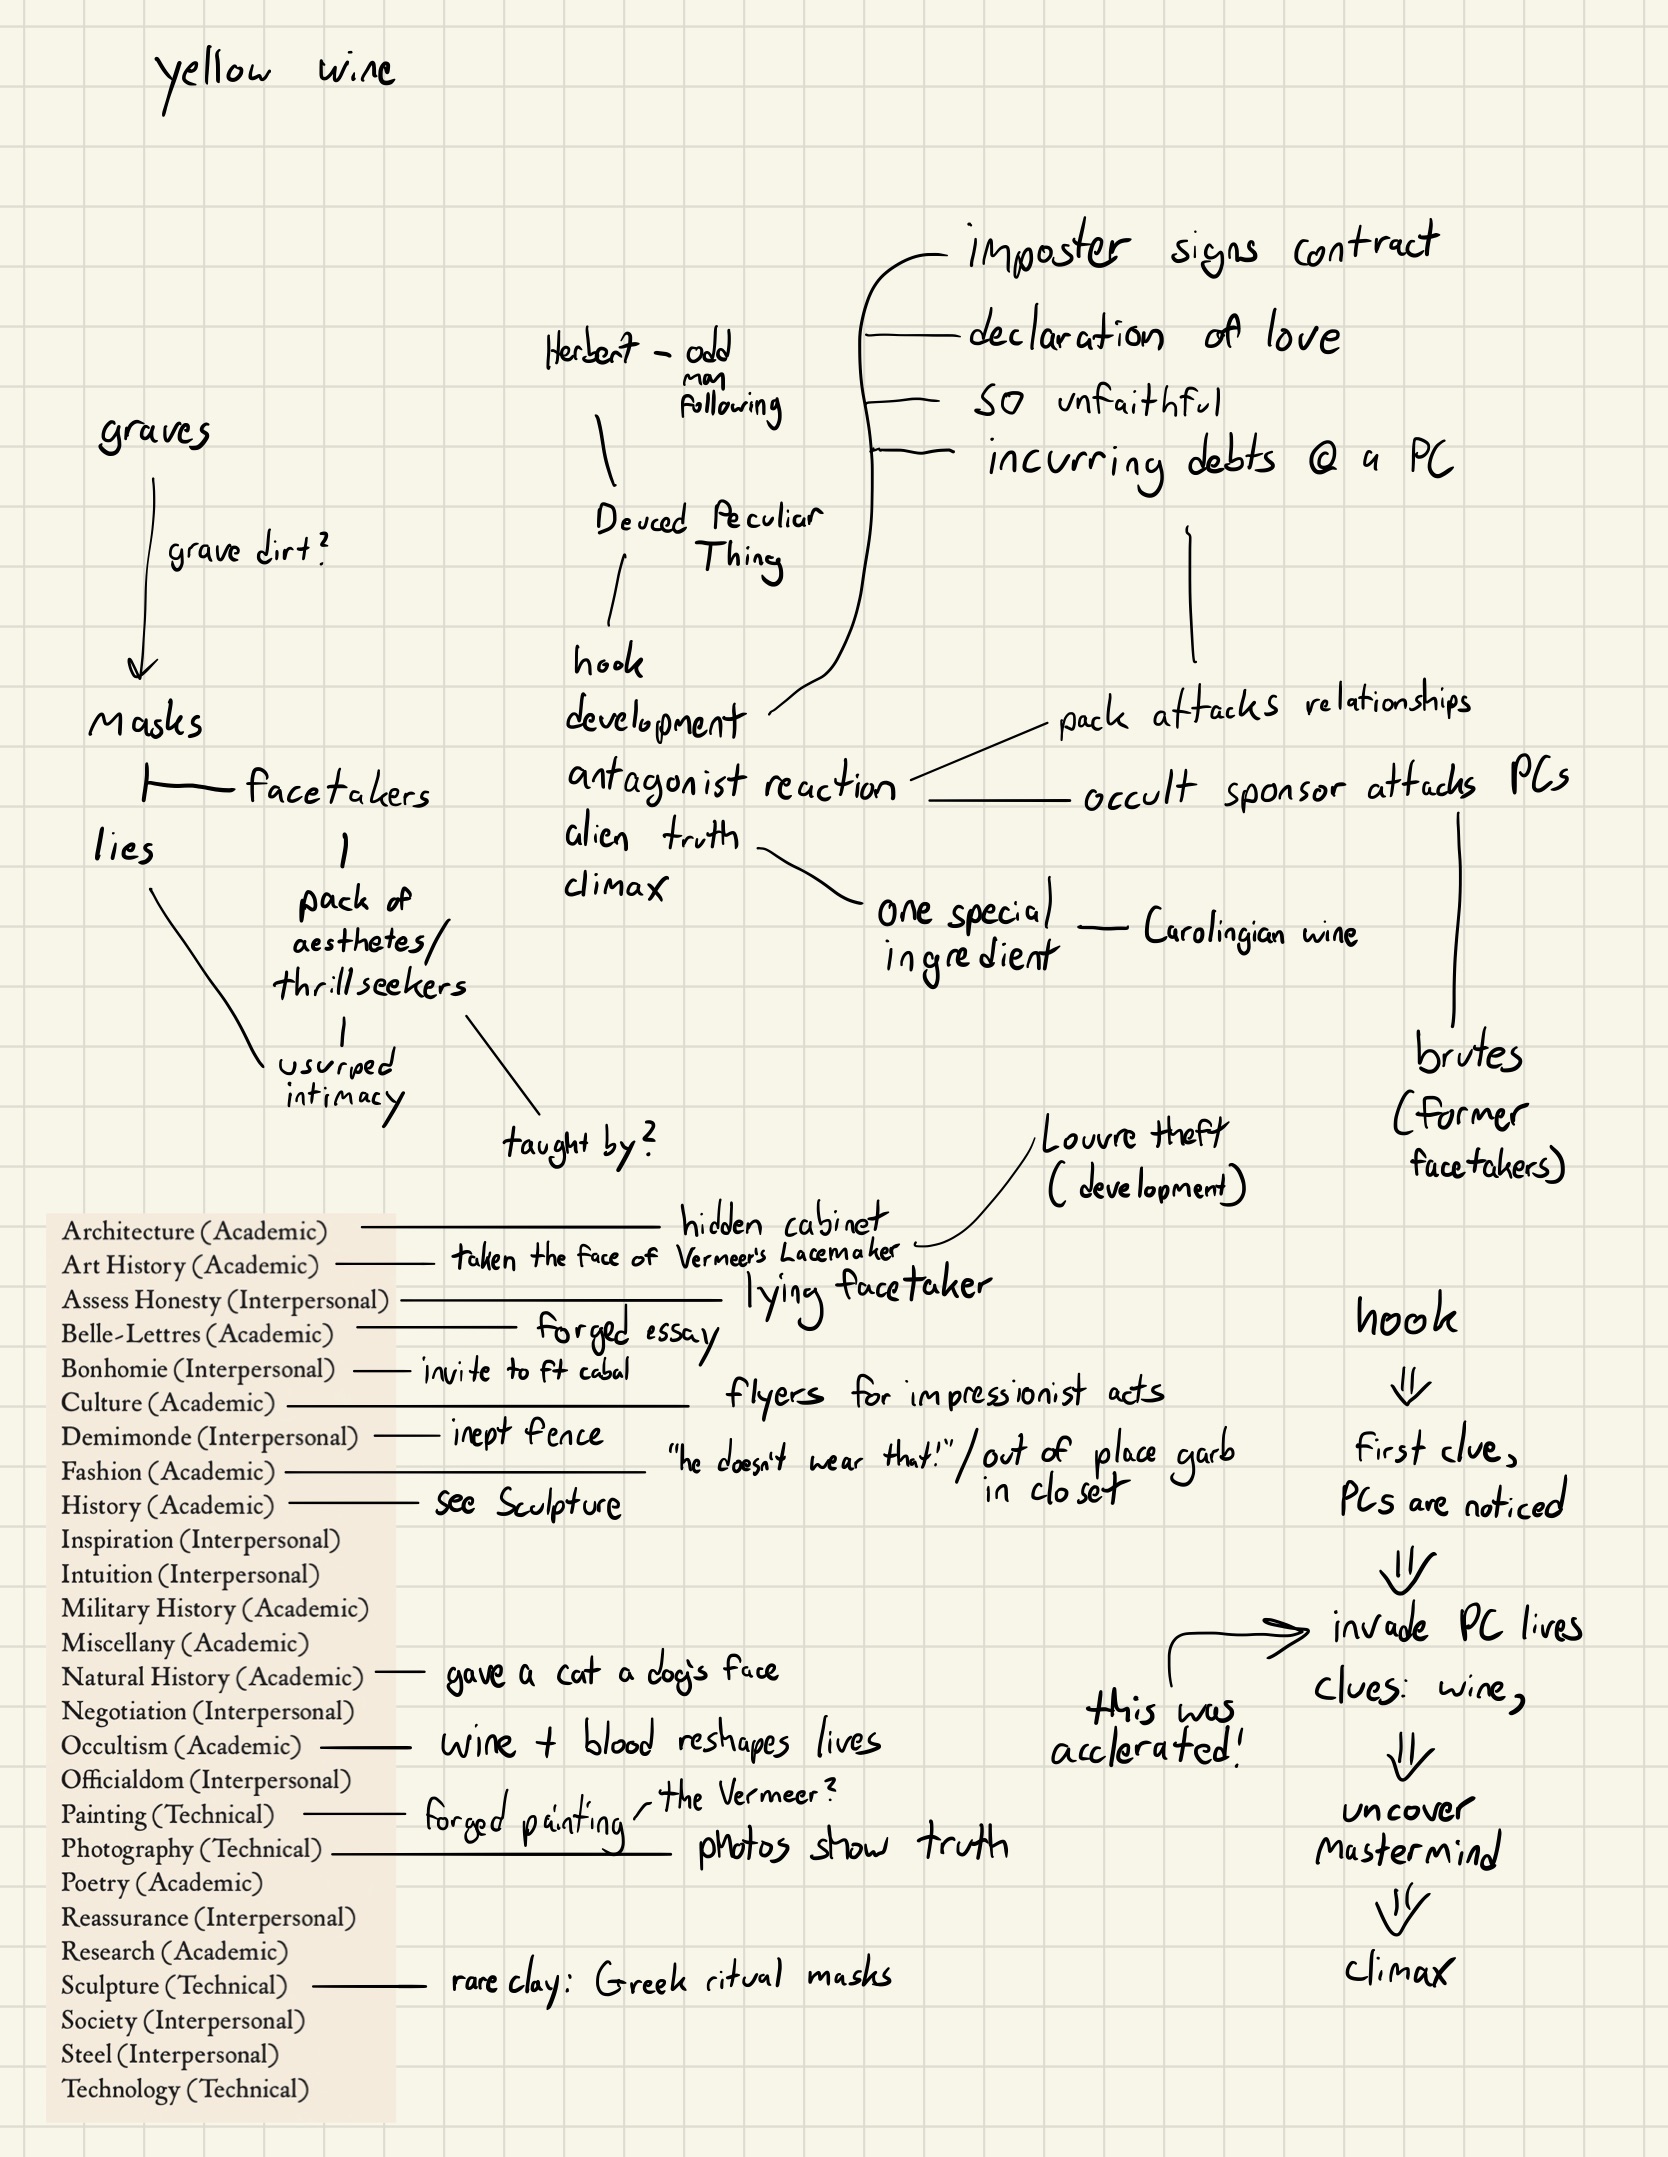 yellow wine
imposter signs contract
declaration of love
so unfaithful
incurring debts @ a PC
Herbert - odd
man
following
Deuced Peculiar
Thing
graves
grave dirt?
Masks
facetakers
lies
pack of
aesthetes/
thrillseekers
usurped
intimacy
taught by?
hook
development
antagonist reaction
alien truth
climax
pack attacks relationships
occult sponsor attacks PCs
one special
ingredient
Carolingian wine
brutes
(former
facetakers)
Louvre theft
(development)
Architecture (Academic)
hidden cabinet
Art History (Academic)
taken the face of Vermeer's Lacemaker
Assess Honesty (Interpersonal)
lying facetaker
Belle-Lettres (Academic)
forged essay
Bonhomie (Interpersonal)
invite to ft cabal
Culture (Academic)
flyers for impressionist acts
Demimonde (Interpersonal)
inept fence
Fashion (Academic)
"he doesn't wear that!"/out of place garb
in closet
History (Academic)
see Sculpture
Inspiration (Interpersonal)
Intuition (Interpersonal)
Military History (Academic)
Miscellany (Academic)
Natural History (Academic)
gave a cat a dog's face
Negotiation (Interpersonal)
Occultism (Academic)
wine + blood reshapes lives
Officialdom (Interpersonal)
Painting (Technical)
forged painting
the Vermeer?
Photography (Technical)
photos show truth
Poetry (Academic)
Reassurance (Interpersonal)
Research (Academic)
Sculpture (Technical)
rare clay: Greek ritual masks
Society (Interpersonal)
Steel (Interpersonal)
Technology (Technical)
hook
first clue,
PCs are noticed
invade PC lives
clues: wine,
this was
acclerated!
uncover
Mastermind
climax